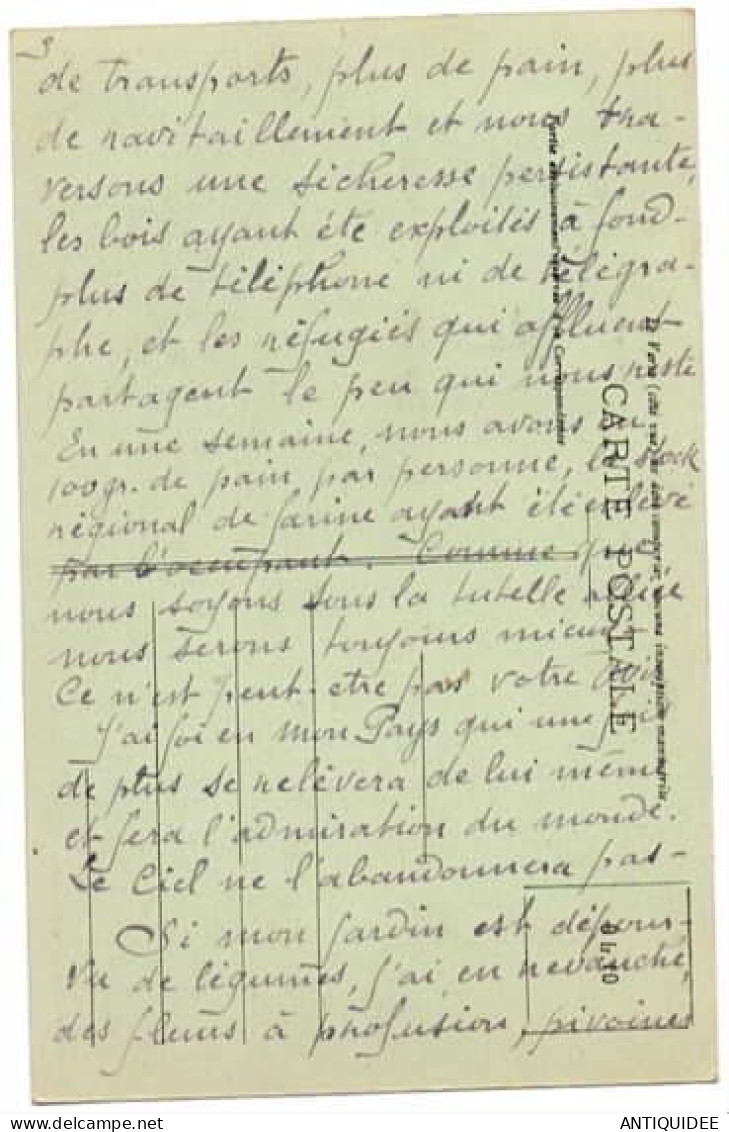 3
de transports, plus de pain, plus
de ravitaillement et nous tra-
versons une sécheresse persistante,
les bois ayant été exploités à fond-
plus de téléphone ni de télégra-
phe, et les réfugiés qui affluent
partagent le peu qui nous reste
En une semaine, nous avons eu
100gr. de pain par personne, le stock
régional de farine ayant été enlevé
par l'occupant. Comme
nous soyons sous la tutelle alliée
nous serons toujours mieux
Ce n'est peut-etre pas votre avis
J'ai foi en mon Pays qui une fois
de plus se relèvera de lui même
et fera l'admiration du monde.
Le Ciel ne l'abandonnera pas-
Si mon jardin est dépour-
vu de légumes, j'ai en revanche,
des fleurs à profusion, pivoines
CARTE POSTALE
ANTIQUIDEE